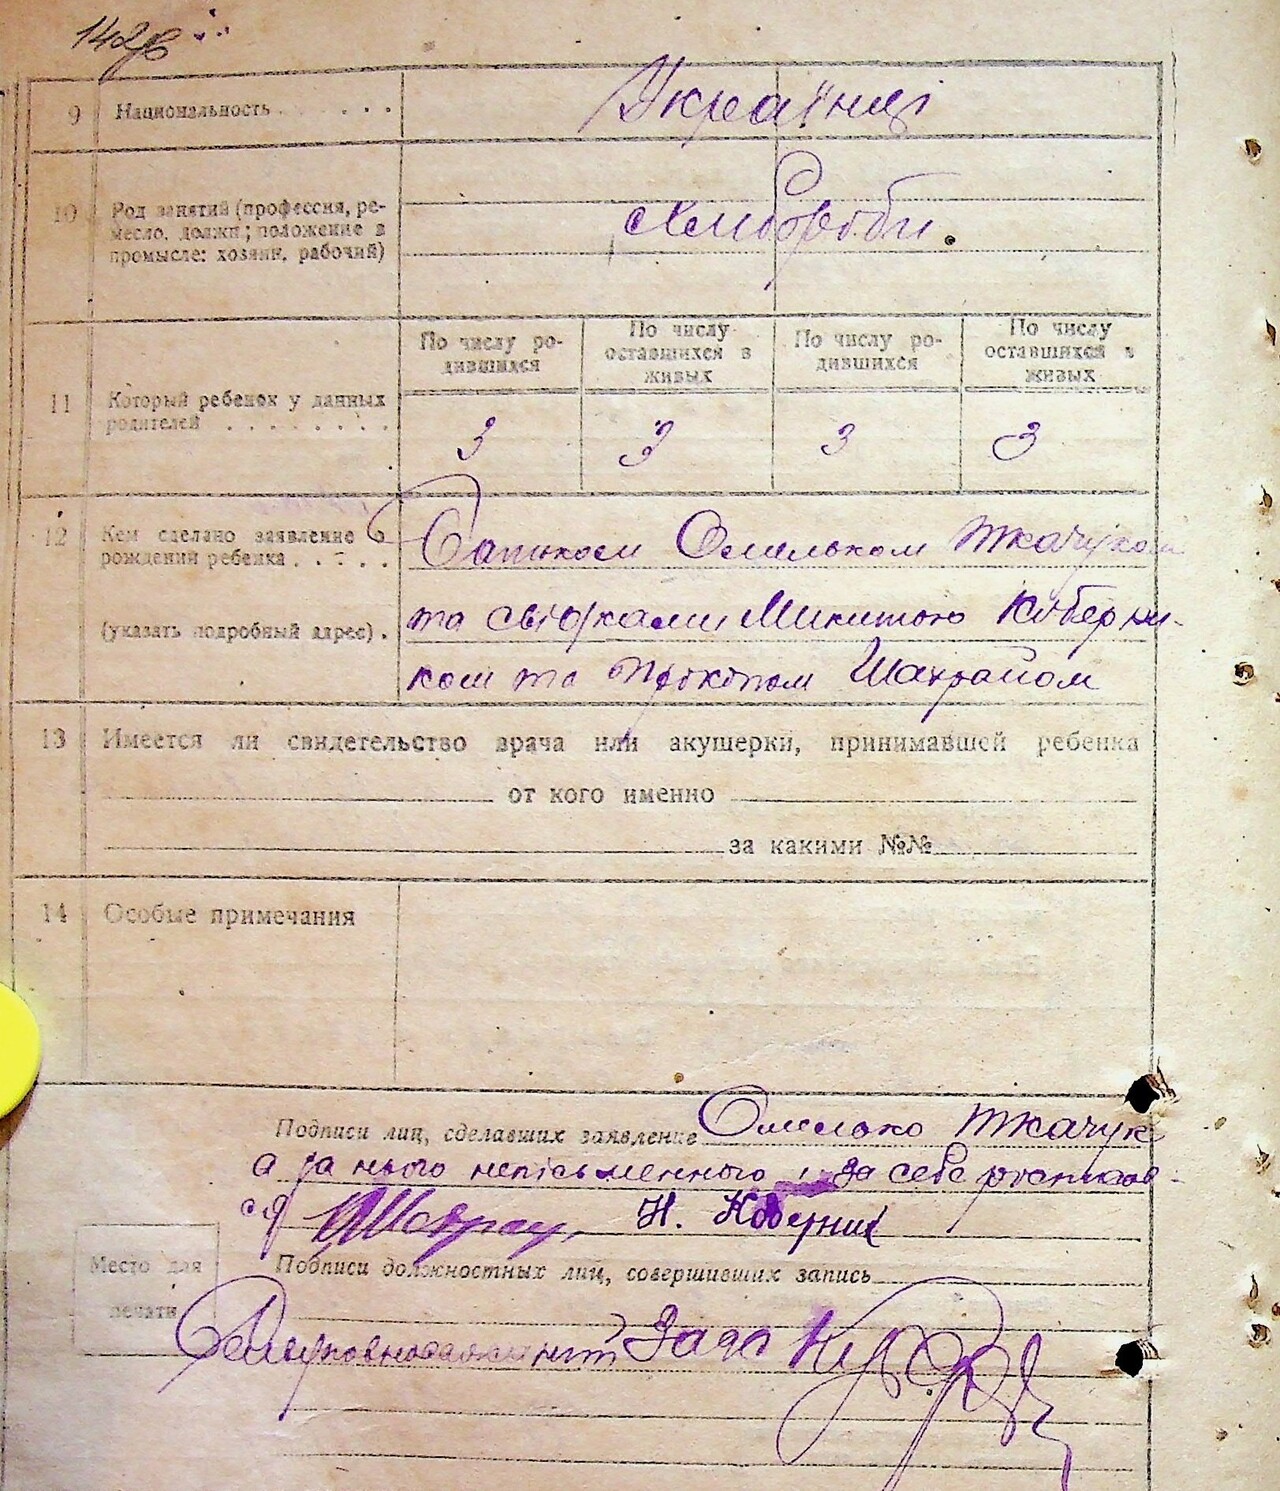 142
9 Национальность . . . . . Українці
10 Род занятий (профессия, ре-
месло, должн; положение в
промысле: хозяин, рабочий)
хлибороби.
По числу ро-
дившихся
По числу
оставшихся в
живых
По числу ро-
дившихся
По числу
оставшихся в
живых
11 Который ребенок у данных
родителей . . . . . . . .
3 3 3 3
12 Кем сделано заявление о
рождении ребенка . . . . .
(указать подробный адрес) .
Батьком Омельком Ткачуком
та свідками Микитою Коберни-
ком та Прокопом Шахрайом
13 Имеется ли свидетельство врача или акушерки, принимавшей ребенка
от кого именно
за какими №№
14 Особые примечания
Подписи лиц, сделавших заявление Омелько Ткачук
а за нього неписьменного і за себе розписав-
ся Н. Коберник
Подписи должностных лиц, совершивших запись
Место для
печати
Уповноважений Загс